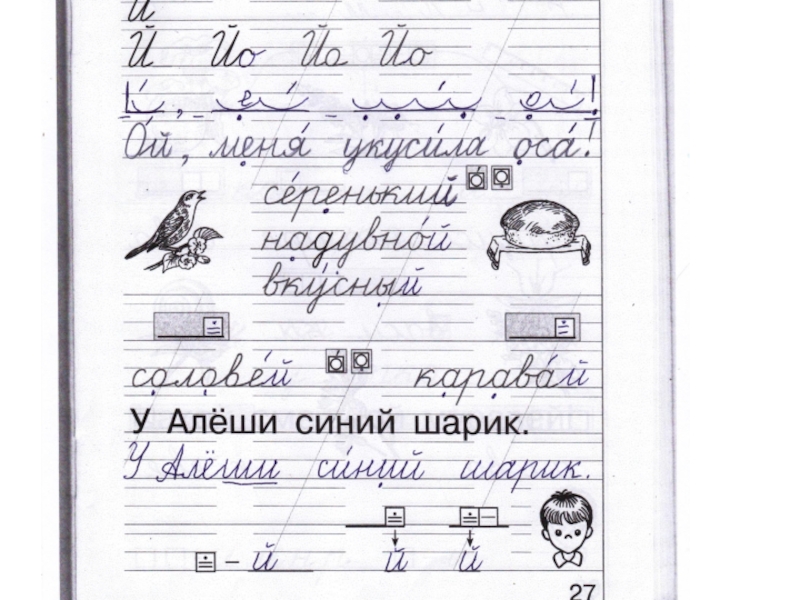 Й
Й Йо Йо Йо
Ой, меня́ укуси́ла оса́!
се́ренький
надувно́й
вку́сный
солове́й карава́й
У Алёши синий шарик.
У Алёши си́ний шарик.
– й й й
27